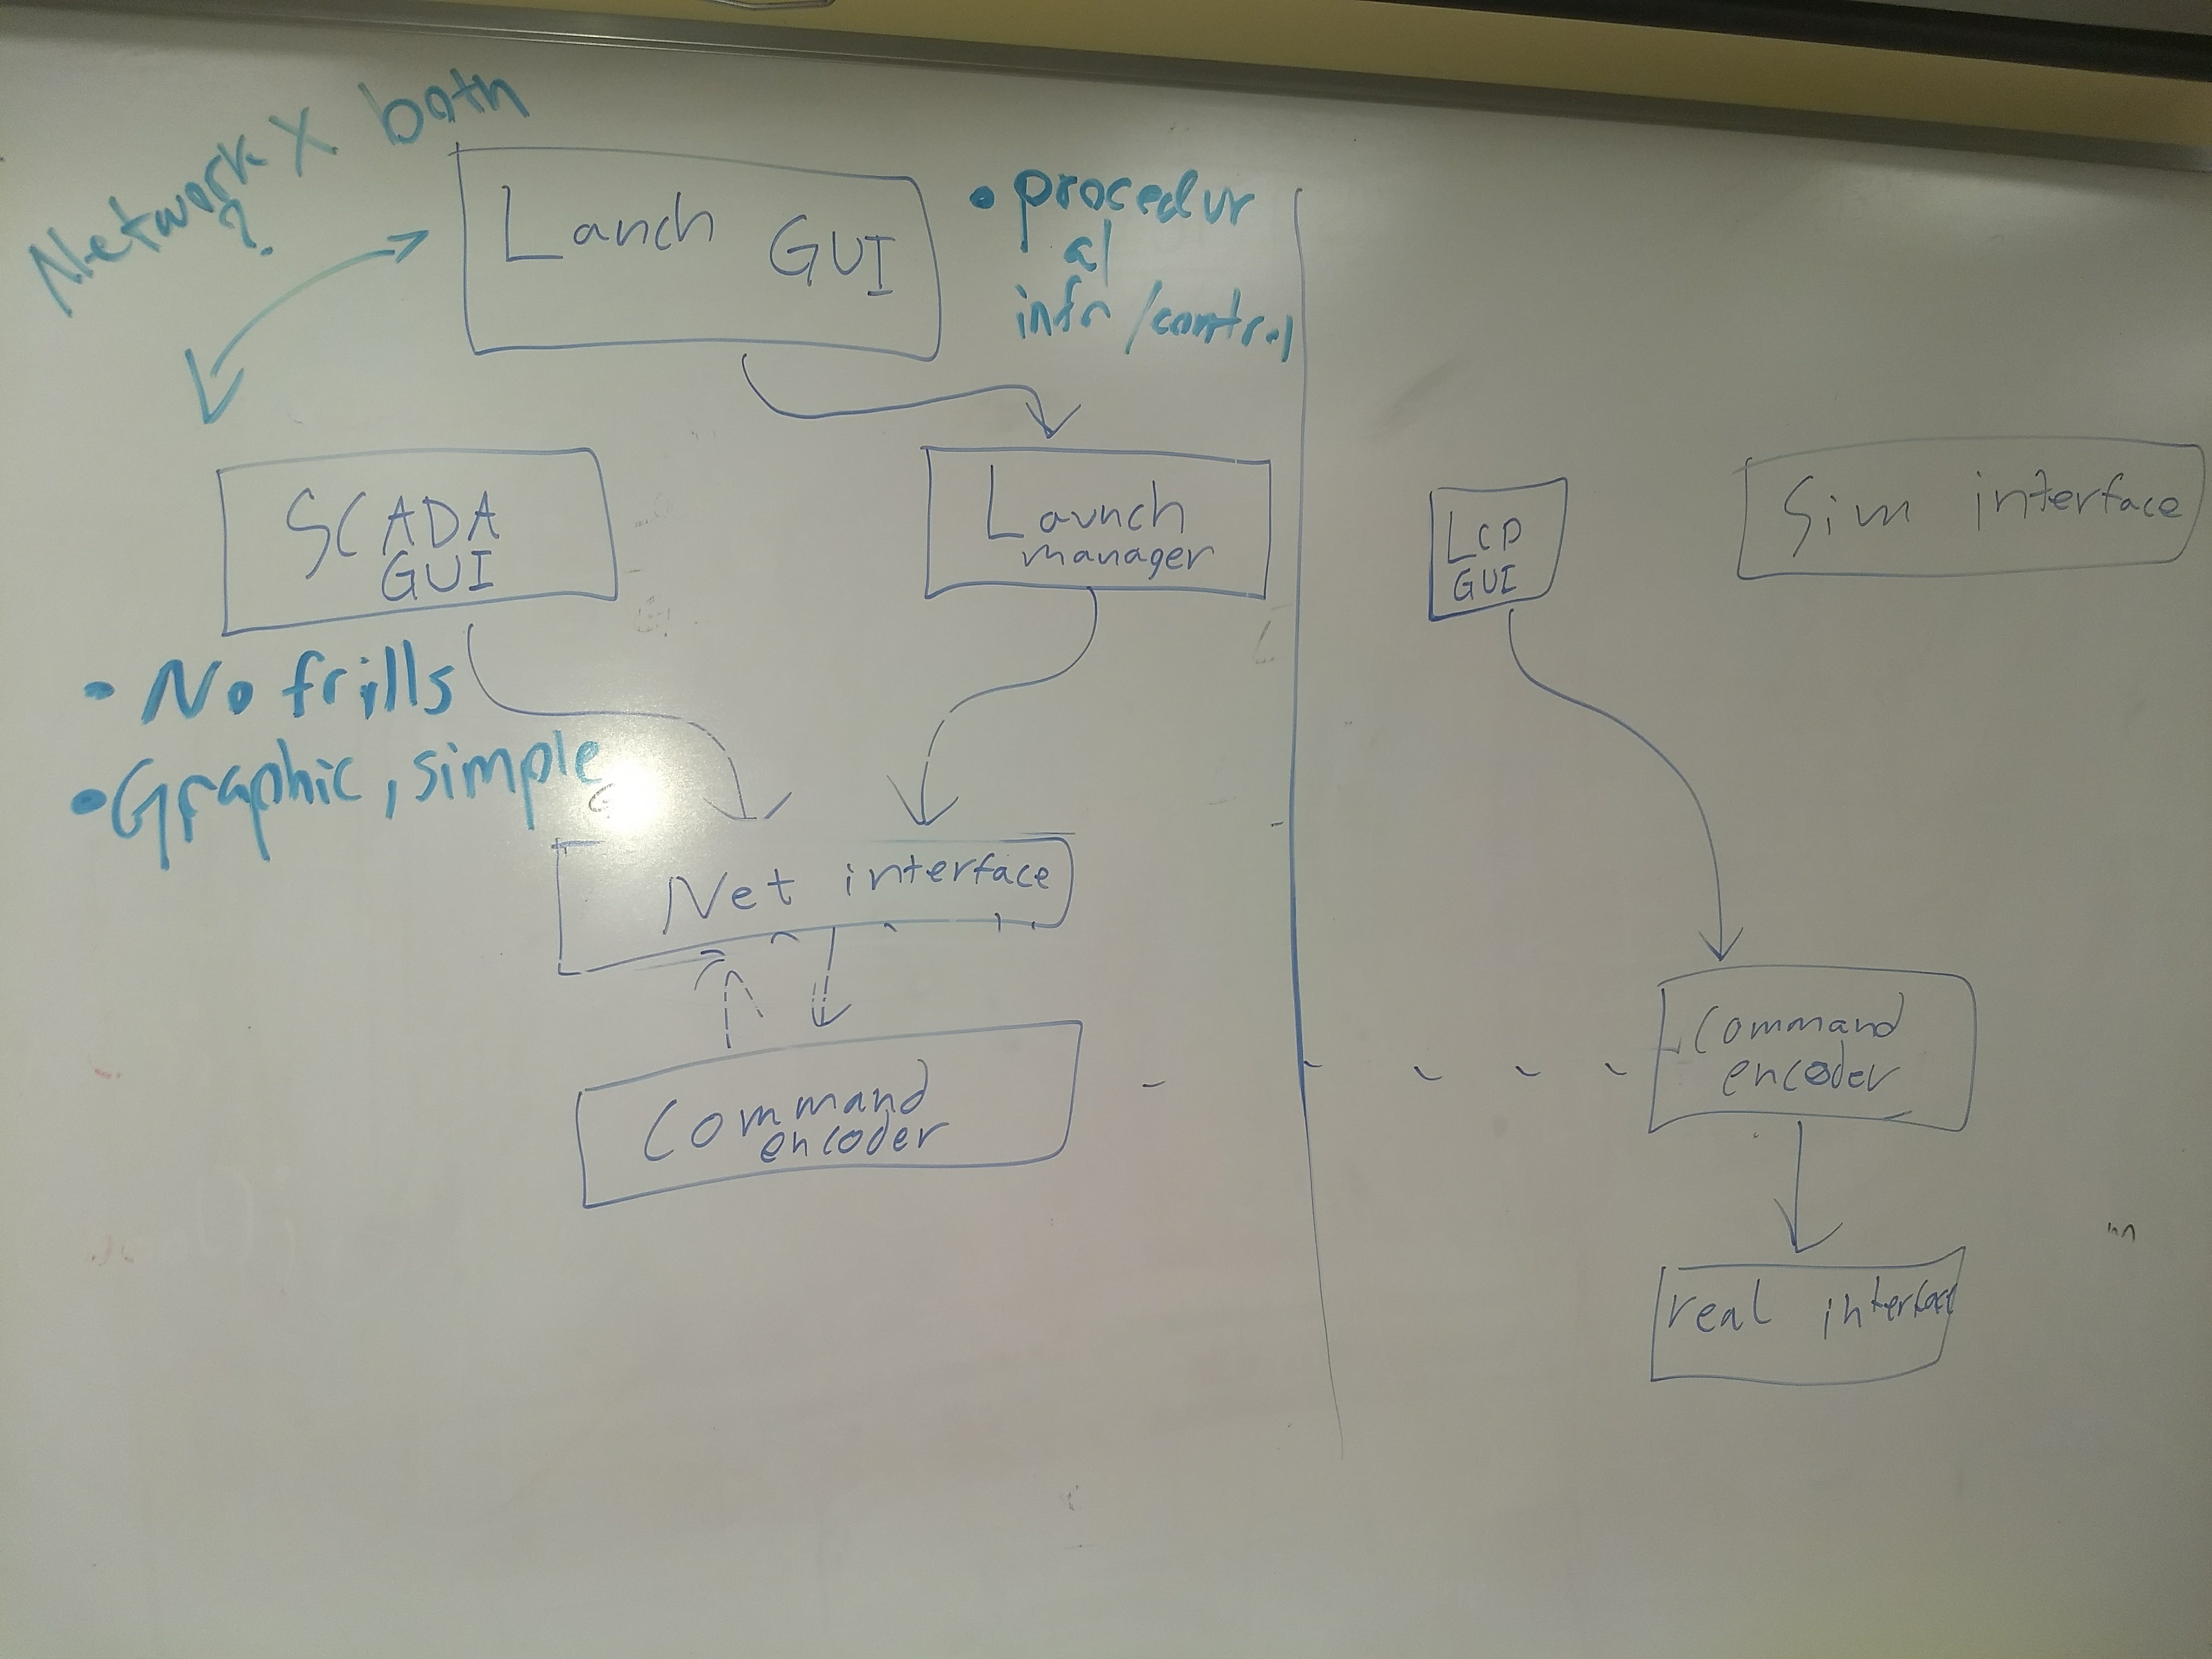 Network X both
?
Lanch GUI
• procedur
al
info/control
SCADA
GUI
• No frills
• Graphic, simple
Launch
manager
Net interface
Command
encoder
LCP
GUI
Sim interface
Command
encoder
real interface